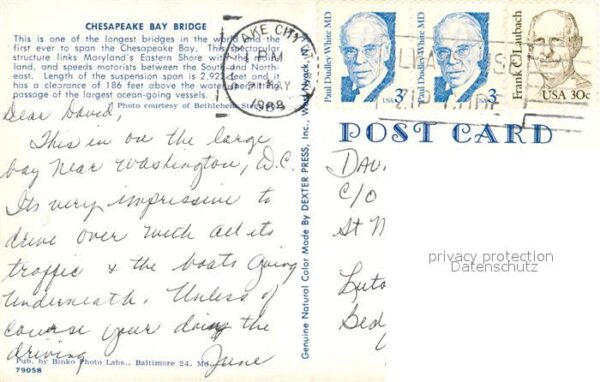 CHESAPEAKE BAY BRIDGE
This is one of the longest bridges in the world and the
first ever to span the Chesapeake Bay. This spectacular
structure links Maryland's Eastern Shore with the
land, and speeds motorists between the South and North-
east. Length of the suspension span is 2,922 feet and it
has a clearance of 186 feet above the water permitting the
passage of the largest ocean-going vessels.
Photo courtesy of Bethlehem Steel
Dear David,
This is on the large
bay Near Washington, D.C.
Its very impressive to
drive over with all its
traffic & the boats going
Underneath. Unless of
course your doing the
driving
June
Pub. by Hinko Photo Labs., Baltimore 24, Md.
79058
Genuine Natural Color Made By DEXTER PRESS, Inc. West Nyack, N.Y.
SALT LAKE CITY
PM
21 MAY
1988
Paul Dudley White MD
USA 3
Paul Dudley White MD
USA 3
Frank C. Laubach
USA 30c
POST CARD
DAV
C/O
St
privacy protection
Datenschutz